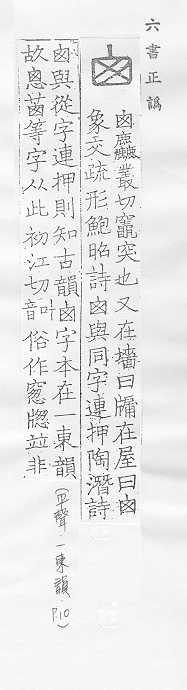 六書正譌
囪麤叢切竈突也又在墻曰牖在屋曰囪
象交疏形鮑昭詩囪與同字連押陶潛詩
囪與從字連押則知古韻囪字本在一東韻
故悤等字从此初江切叶音俗作窻牕竝非
(平聲·一東韻 P.10)